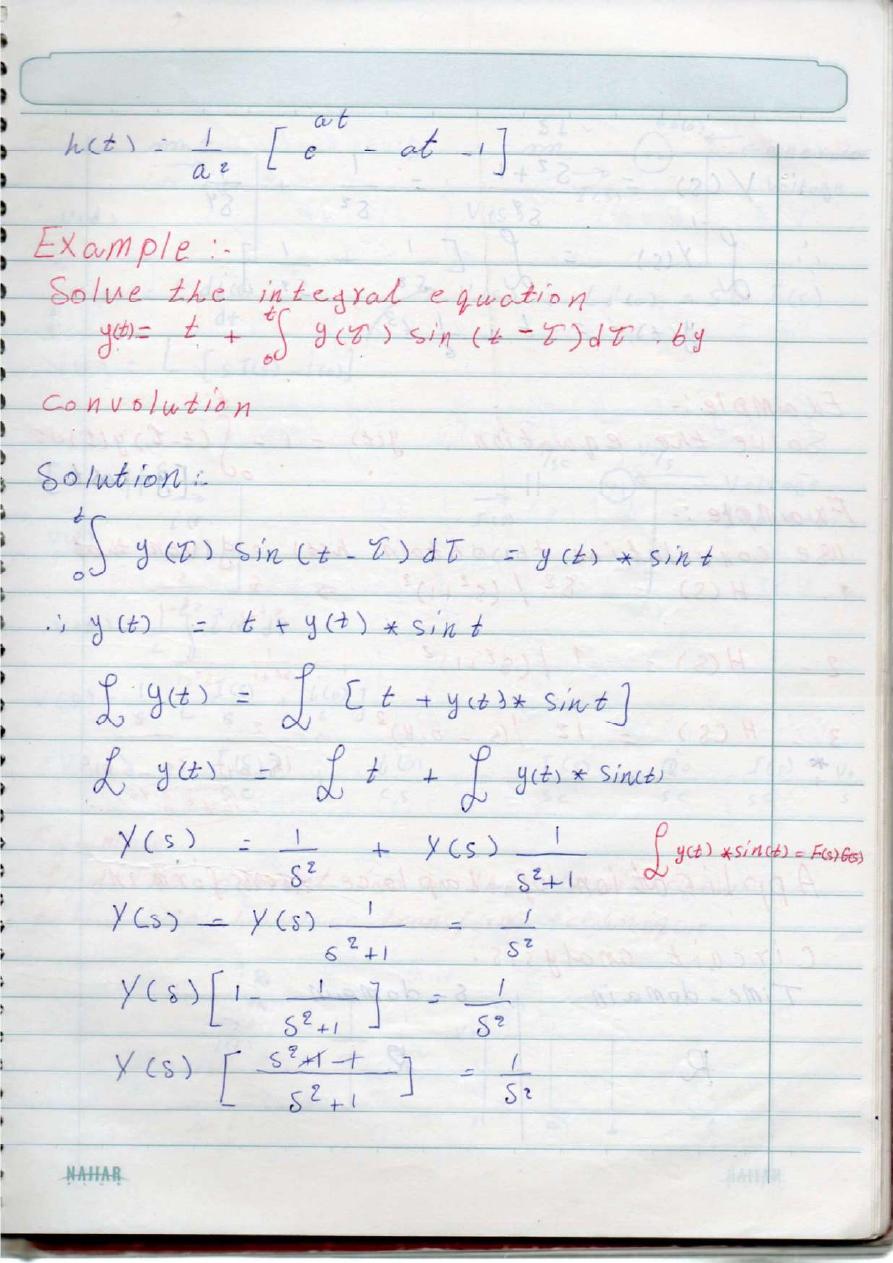 h(t) = 1/a² [ e^at - at - 1 ]
Example :-
Solve the integral equation
y(t) = t + ₀∫ᵗ y(τ) sin (t - τ) dτ . by
convolution
Solution :-
₀∫ᵗ y(τ) sin (t - τ) dτ = y(t) * sin t
∴ y(t) = t + y(t) * sin t
ℒ y(t) = ℒ [ t + y(t) * sin t ]
ℒ y(t) = ℒ t + ℒ y(t) * sin(t)
Y(s) = 1/s² + Y(s) 1/(s²+1) ℒ y(t) * sin(t) = F(s) G(s)
Y(s) - Y(s) 1/(s²+1) = 1/s²
Y(s) [ 1 - 1/(s²+1) ] = 1/s²
Y(s) [ (s²+1-1)/(s²+1) ] = 1/s²
NAJJAR